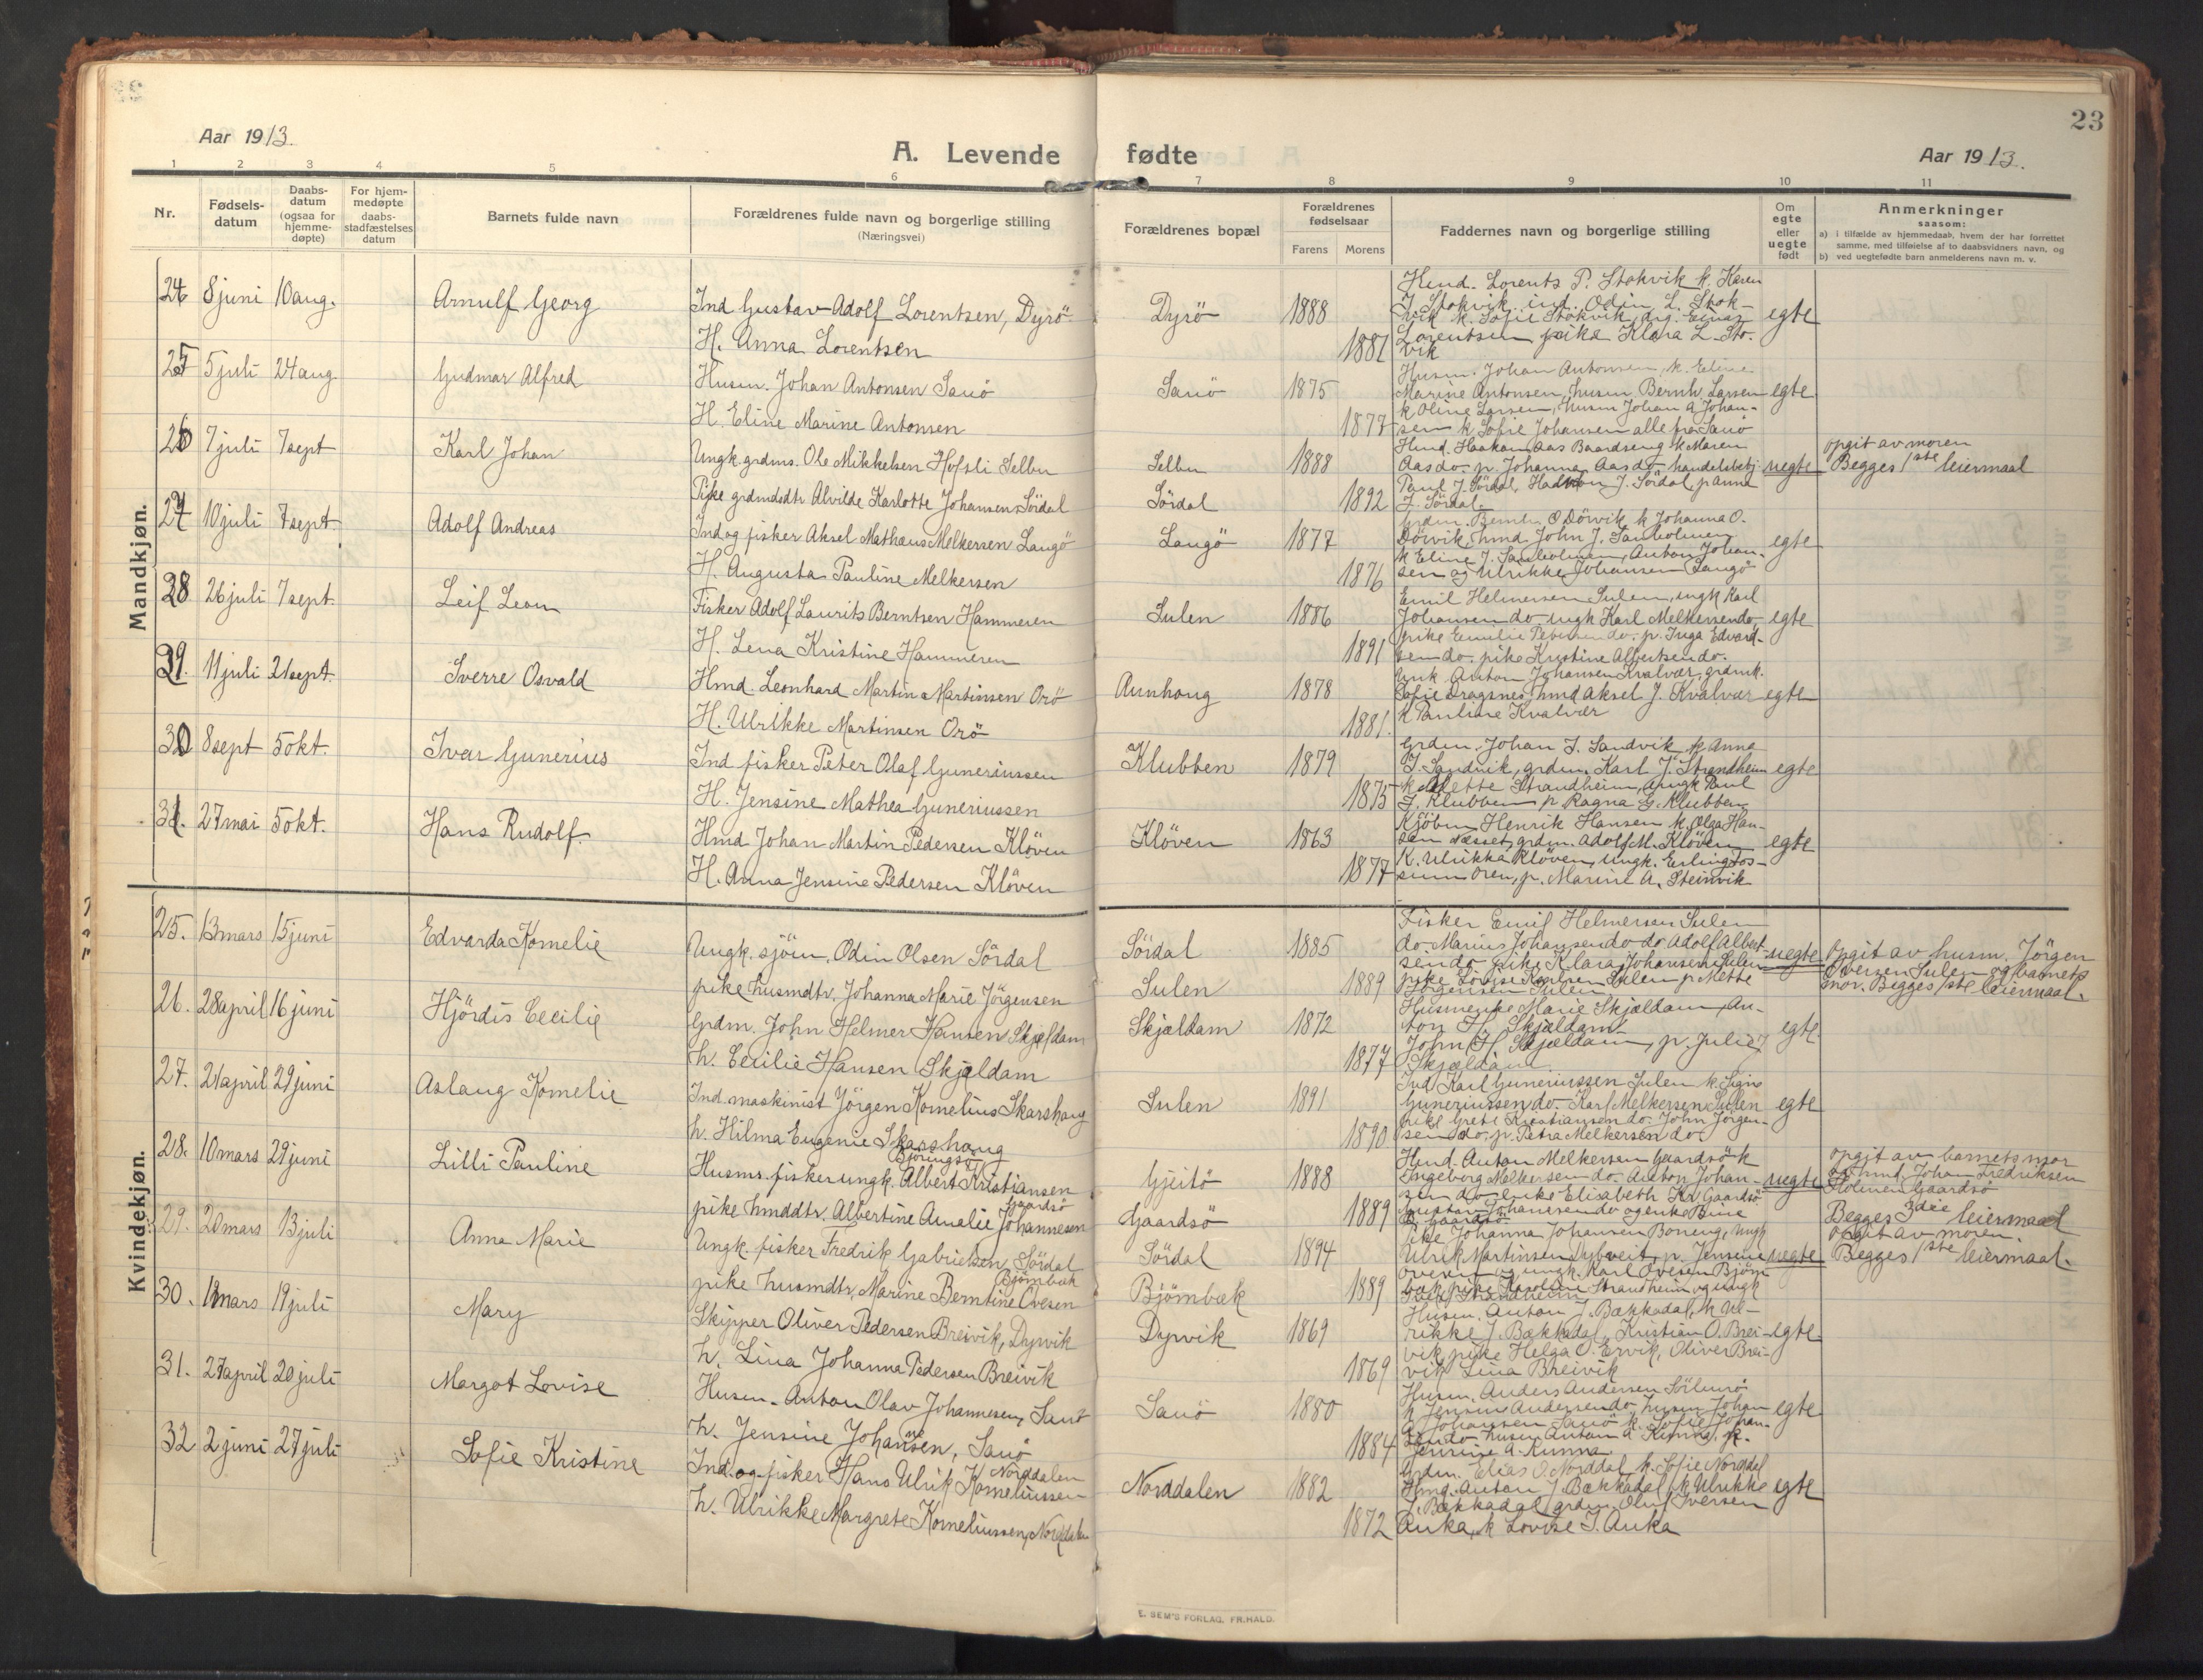 23
Aar 1913.
A. Levende fødte
Aar 1913.
1 2 3 4 5 6 7 8 9 10 11
Nr.
Fødsels-
datum
Daabs-
datum
(ogsaa for
hjemme-
døpte)
For hjem-
medøpte
daabs-
stadfæstelses
datum
Barnets fulde navn
Forældrenes fulde navn og borgerlige stilling
(Næringsvei)
Forældrenes bopæl
Forældrenes
fødselsaar
Farens
Morens
Faddernes navn og borgerlige stilling
Om
egte
eller
uegte
født
Anmerkninger
saasom:
a) i tilfælde av hjemmedaab, hvem der har forrettet
samme, med tilføielse af to daabsvidners navn, og
b) ved uegtefødte barn anmelderens navn m. v.
Mandkjøn.
24 8 juni 10 aug. Arnulf Georg
Ind Gustav Adolf Lorentsen, Dyrö
H. Anna Lorentsen
Dyrö 1888 1881
Hmd. Lorents P. Stokvik k. Karen
J Stokvik ind. Odin L. Stok-
vik k. Sofie Stokvik, Einar
Lorentsen pike Klara L. Sto-
vik
egte
25 5 juli 24 aug. Gudmar Alfred
Husm. Johan Antonsen Sauö
H. Eline Marine Antonsen
Sauö 1875 1877
Husm. Johan Antonsen k. Eline
Marine Antonsen, husm Bernh. Larsen
k Oline Larsen, husm Johan A Johan-
sen k Sofie Johansen alle fra Sauö
egte
26 7 juli 7 sept Karl Johan
Ungk. grdms. Ole Mikkelsen Hofsli Selbu
Pike grdmdtr Alvilde Karlotte Johansen Sördal
Selbu 1888
Sördal 1892
Hmd. Haakon Aas Baardseng k Maren
Aas do. p. Johanna Aas do handelsbetj.
Paul J. Sördal, Haakon J. Sördal, p Anna
J. Sördal
uegte
opgit av moren
Begges 1ste leiermaal
27 10 juli 7 sept Adolf Andreas
Ind og fisker Aksel Mathaus Melkersen Langö
H. Augusta Pauline Melkersen
Langö 1877 1876
Grdm. Bernh. O Dörvik k Johanna O.
Dörvik, hmd John J. Sandholmen
k Eline J. Sandholmen, Anton Johan-
sen og Ulrikke Johansen Langö
egte
28 26 juli 7 sept. Leif Leon
Fisker Adolf Laurits Berntsen Hammeren
H. Lena Kristine Hammeren
Sulen 1886 1891
Emil Helmersen Sulen, ungk Karl
Johansen do ungk Karl Melkersen do,
pike Emilie Petersen do. p. Inga Edvard-
sen do. pike Kristine Albertsen do.
egte
29. 11 juli 21 sept. Sverre Osvald
Hmd. Leonhard Martin Martinsen Orö
H. Ulrikke Martinsen Orö
Aunhaug 1878 1881.
Enk. Anton Johansen Kvalvær, grdmk.
Sofie Dragsnes, hmd Aksel J. Kvalvær
k Pauline Kvalvær
egte
30 8 sept 5 okt. Ivar Gunerius
Ind fisker Peter Olaf Guneriussen
H. Jensine Mathea Guneriussen
Klubben 1879 1875
Grdm. Johan J. Sandvik k. Anna
J. Sandvik, grdm. Karl J. Strandheim
k Mette Strandheim, ungk Paul
G. Klubben p. Ragna G. Klubben
egte
31. 27 mai 5 okt. Hans Rudolf.
Hmd Johan Martin Pedersen Klöven
H. Anna Jensine Pedersen Klöven
Klöven 1863 1877
Kjöbm Henrik Hansen k. Olga Han-
sen Næsset, grdm. Adolf M. Klöven
K. Ulrikka Klöven, ungk. Erling Fos-
sum Oren, p. Marine A. Steinvik
egte
Kvindekjøn.
25. 13 mars 15 juni Edvarda Kornelie
Ungk. sjöm. Odin Olsen Sördal
pike husmdtr. Johanna Marie Jörgensen
Sördal 1885
Sulen 1889
Fisker Emil Helmersen Sulen
do. Marius Johansen do do Adolf Albert-
sen do pike Klara Johansen Sulen
pike Lovise Karlsen Sulen p. Mette
Jörgensen Sulen
uegte
opgit av husm. Jörgen
Iversen Sulen og barnets
mor. Begges 1ste leiermaal.
26. 28 april 16 juni Hjördis Cecilie
Grdm. John Helmer Hansen Skjældam
h. Cecilie Hansen Skjældam
Skjældam 1872 1877
Husmenke Marie Skjældam, An-
ton H. Skjældam
John H. Skjældam, p. Julie
Skjældam.
egte
27. 21 april 29 juni Aslaug Kornelie
Ind. maskinist Jörgen Kornelius Skarshaug
h. Hilma Eugenie Skarshaug
Sulen 1891 1890
Ind Karl Guneriussen Sulen k. Signe
Guneriussen do. Karl Melkersen Sulen
pike Grete Kristiansen do. John Jörgen-
sen do. p. Petra Melkersen do.
egte
28. 10 mars 29 juni Lilli Pauline
Björingsö
Husms. fisker ungk. Albert Kristiansen
Gaardsö
pike hmddtr. Albertine Amalie Johannesen
Gjeitö 1888
Gaardsö 1889
Hmd. Anton Melkersen Gaardsö k
Ingeborg Melkersen do. Anton Johan-
sen do enke Elisabeth Kr. Gaardsö
Gustav Johansen do og enke Bine
Gaardsö
uegte
opgit av barnets mor
og hmd. Johan Fredriksen
Holmen Gaardsö
Begges 3die leiermaal
29. 20 mars 13 juli Anna Marie
Ungk. fisker Fredrik Gabrielsen Sördal
Björnbæk
pike husmdtr, Marine Berntine Ovesen
Sördal 1894
Björnbæk 1889
Pike Johanna Johansen Boneng, ungk
Ulrik Martinsen Dybveit, p. Jensine
Ovesen og ungk. Karl Ovesen Björn-
bæk pike Karoline Strandheim og ungk
Strandheim
uegte
opgit av moren.
Begges 1ste leiermaal.
30. mars 19 juli Mary
Skipper Oliver Pedersen Breivik, Dyrvik
h. Lina Johanna Pedersen Breivik
Dyrvik 1869 1869
Husm. Anton J. Bækkadal, k Ul-
rikke J. Bækkadal, Kristian O. Brei-
vik pike Helga O. Ervik, Oliver Brei-
vik Lina Breivik
egte
31. 27 april 20 juli Margot Lovise
Husm. Anton Olav Johannesen, Sauö
h. Jensine Johansen, Sauö
Sauö 1880 1884
Husm. Anders Andersen Sörburö
k Jensine Andersen do, husm Johan
A Johansen Sauö k. Sofie Johan-
sen do husm Anton A. Kunna, k.
Jensine A. Kunna.
egte
32 2 juni 27 juli Sofie Kristine
Norddalen
Ind. og fisker Hans Ulrik Korneliussen
h. Ulrikke Margrete Korneliussen, Norddalen
Norddalen 1882 1872
Grdm. Elias O. Norddal k. Sofie Norddal
Hmd. Anton J. Bækkadal, k Ulrikke
J. Bækkadal grdm. Oluf Iversen
Auka, k Lovise I. Auka
egte
E. SEM'S FORLAG, FR.HALD.